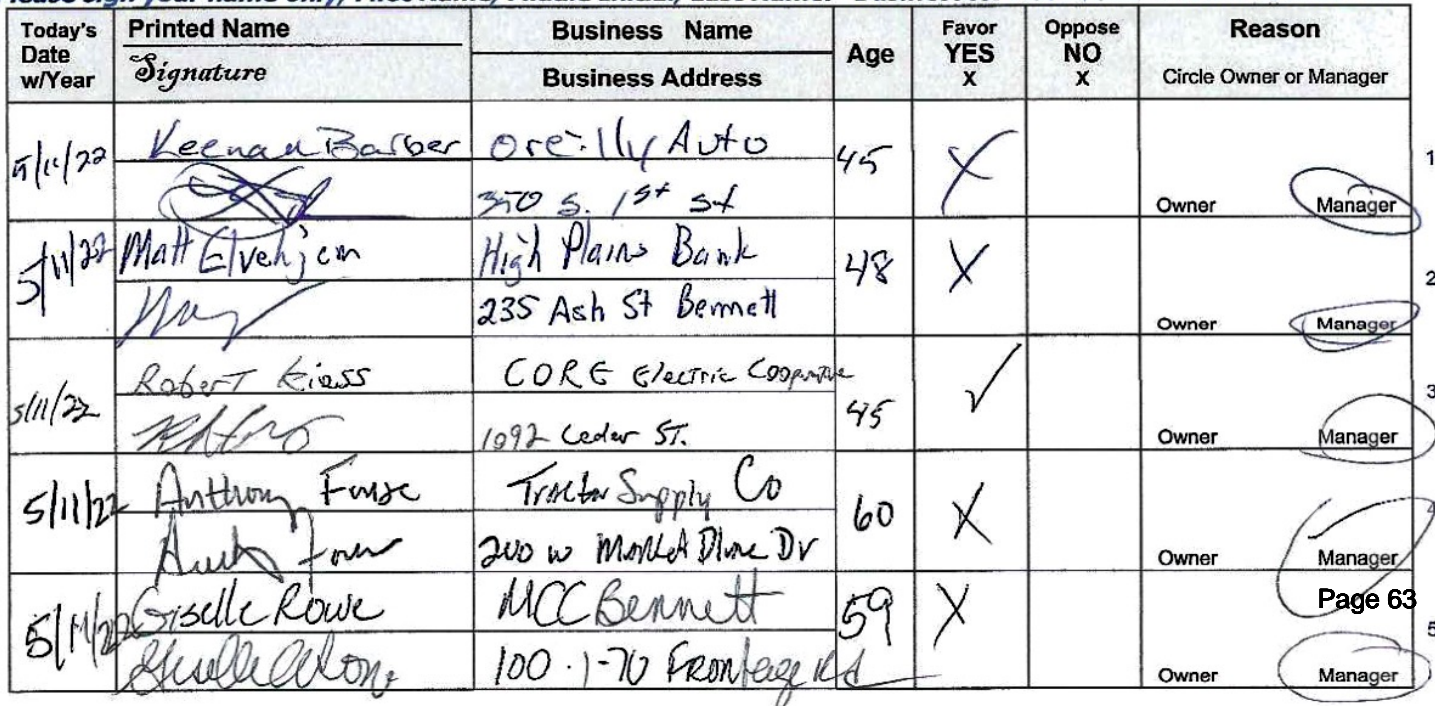 Today's Date w/Year Printed Name Signature Business Name Business Address Age Favor YES x Oppose NO x Reason Circle Owner or Manager
5/11/22 Keenan Barber Oreilly Auto 45 X 1
350 S. 1st St Owner Manager
5/11/22 Matt Elvehjem High Plains Bank 48 X 2
235 Ash St Bennett Owner Manager
5/11/22 Robert CORE Electric Cooperative 45 ✓ 3
1092 Cedar ST. Owner Manager
5/11/22 Anthony Tractor Supply Co 60 X 4
200 W Market Dr Owner Manager
5/11/22 Giselle Rowe MCC Bennett 59 X Page 63
Giselle Rowe 100 I-70 Frontage Rd Owner Manager 5